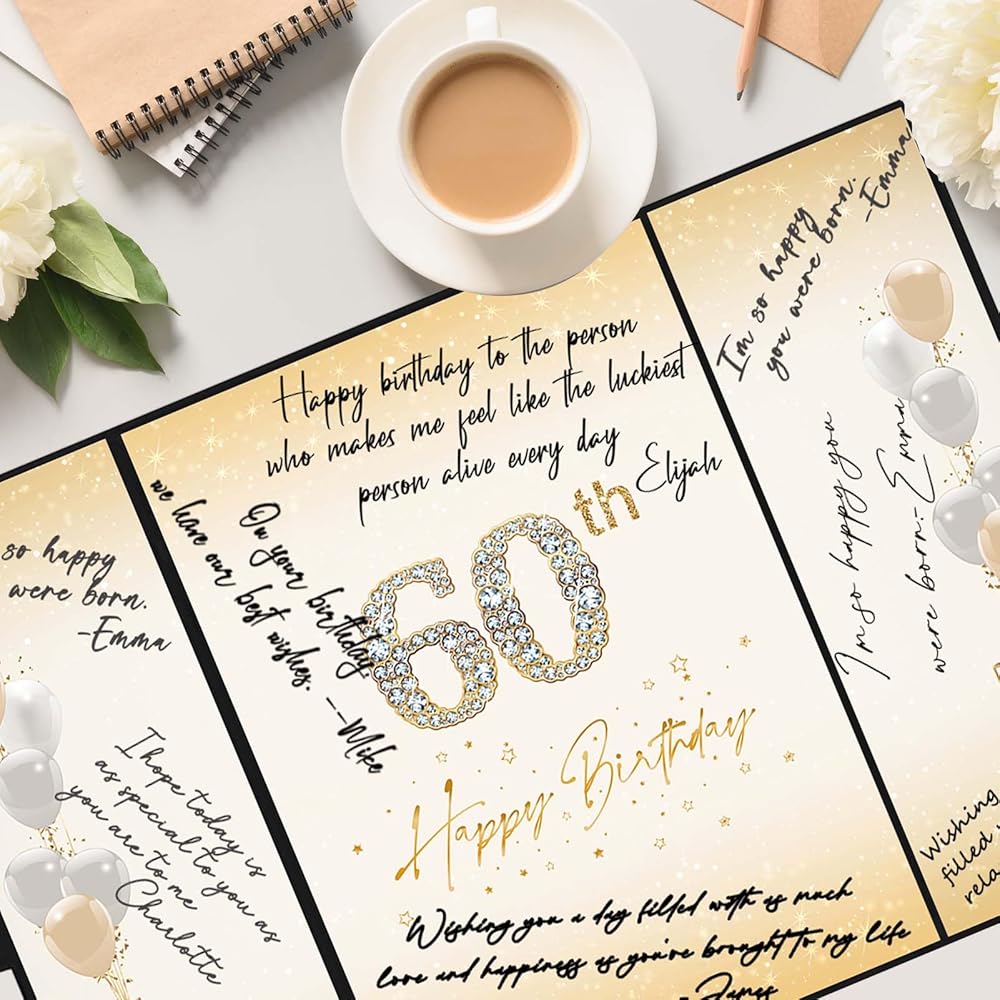 so happy
were born.
-Emma
I hope today is
as special to you as
you are to me
Charlotte
Happy birthday to the person
who makes me feel like the luckiest
person alive every day
Elijah
On your birthday,
we have our best wishes. --Mike
60th
Happy Birthday
Wishing you a day filled with as much
love and happiness as you've brought to my life
- James
I'm so happy
you were born.
-Emma
I'm so happy you
were born.- Emma
Wishing
filled
rela